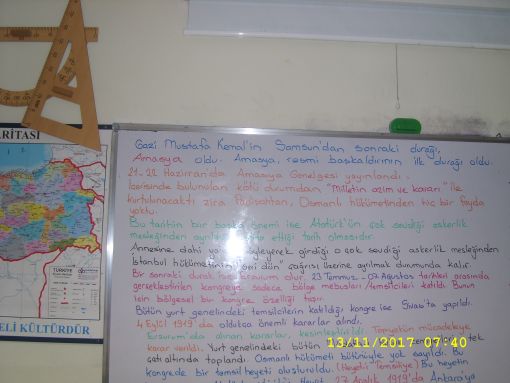 ARİTASI
TÜRKİYE
ELİ KÜLTÜRDÜR
Gazi Mustafa Kemal'in Samsun'dan sonraki durağı,
Amasya oldu. Amasya, resmi başkaldırının ilk durağı oldu.
21-22 Haziran'da Amasya Genelgesi yayınlandı.
İçerisinde bulunulan kötü durumdan "Milletin azim ve kararı" ile
kurtulunacaktı zira Padişahtan, Osmanlı hükümetinden hiç bir fayda
yoktu.
Bu tarihin bir başka önemi ise Atatürk'ün çok sevdiği askerlik
mesleğinden ettiği tarih olmasıdır.
Annesine dahi söyleyerek girdiği o çok sevdiği askerlik mesleğinden
İstanbul hükümetinin "geri dön" çağrısı üzerine ayrılmak durumunda kalır.
Bir sonraki durak ise Erzurum olur. 23 Temmuz - 07 Ağustos tarihleri arasında
gerçekleştirilen kongreye sadece bölge mebusları/temsilcileri katıldı. Bunun
için bölgesel bir kongre özelliği taşır.
Bütün yurt genelindeki temsilcilerin katıldığı kongre ise Sivas'ta yapıldı.
4 Eylül 1919'da oldukça önemli kararlar alındı.
Erzurum'da alınan kararlar, kesinleştirildi. Topyekün mücadeleye
karar verildi. Yurt genelindeki bütün tek
çatı altında toplandı. Osmanlı hükümeti bütünüyle yok sayıldı. Bu
kongrede bir temsil heyeti oluşturuldu. (Heyet-i Temsiliye) Bu heyetin
27 Aralık 1919'da Ankara'ya
13/11/2017 07:40